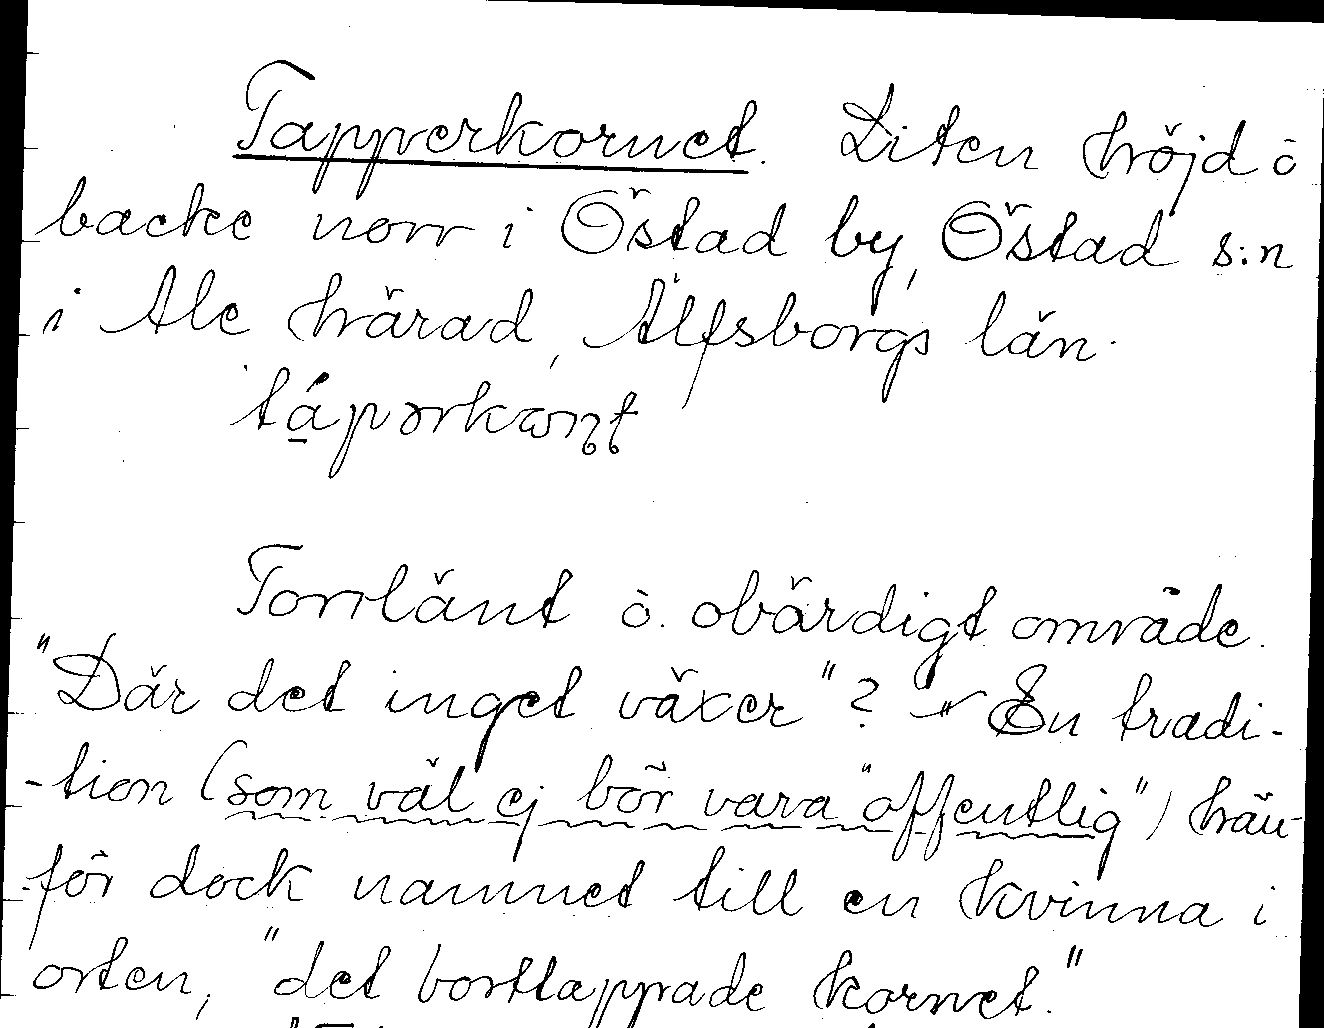 Tapperkornet. Liten höjd o
backe norr i Östad by, Östad s:n
i Ale härad, Älfsborgs län.
Torrlänt o. obärdigt område.
"Där det inget växer"? En tradi-
-tion (som väl ej bör vara "offentlig") hän-
-för dock namnet till en kvinna i
orten, "det borttappade kornet."